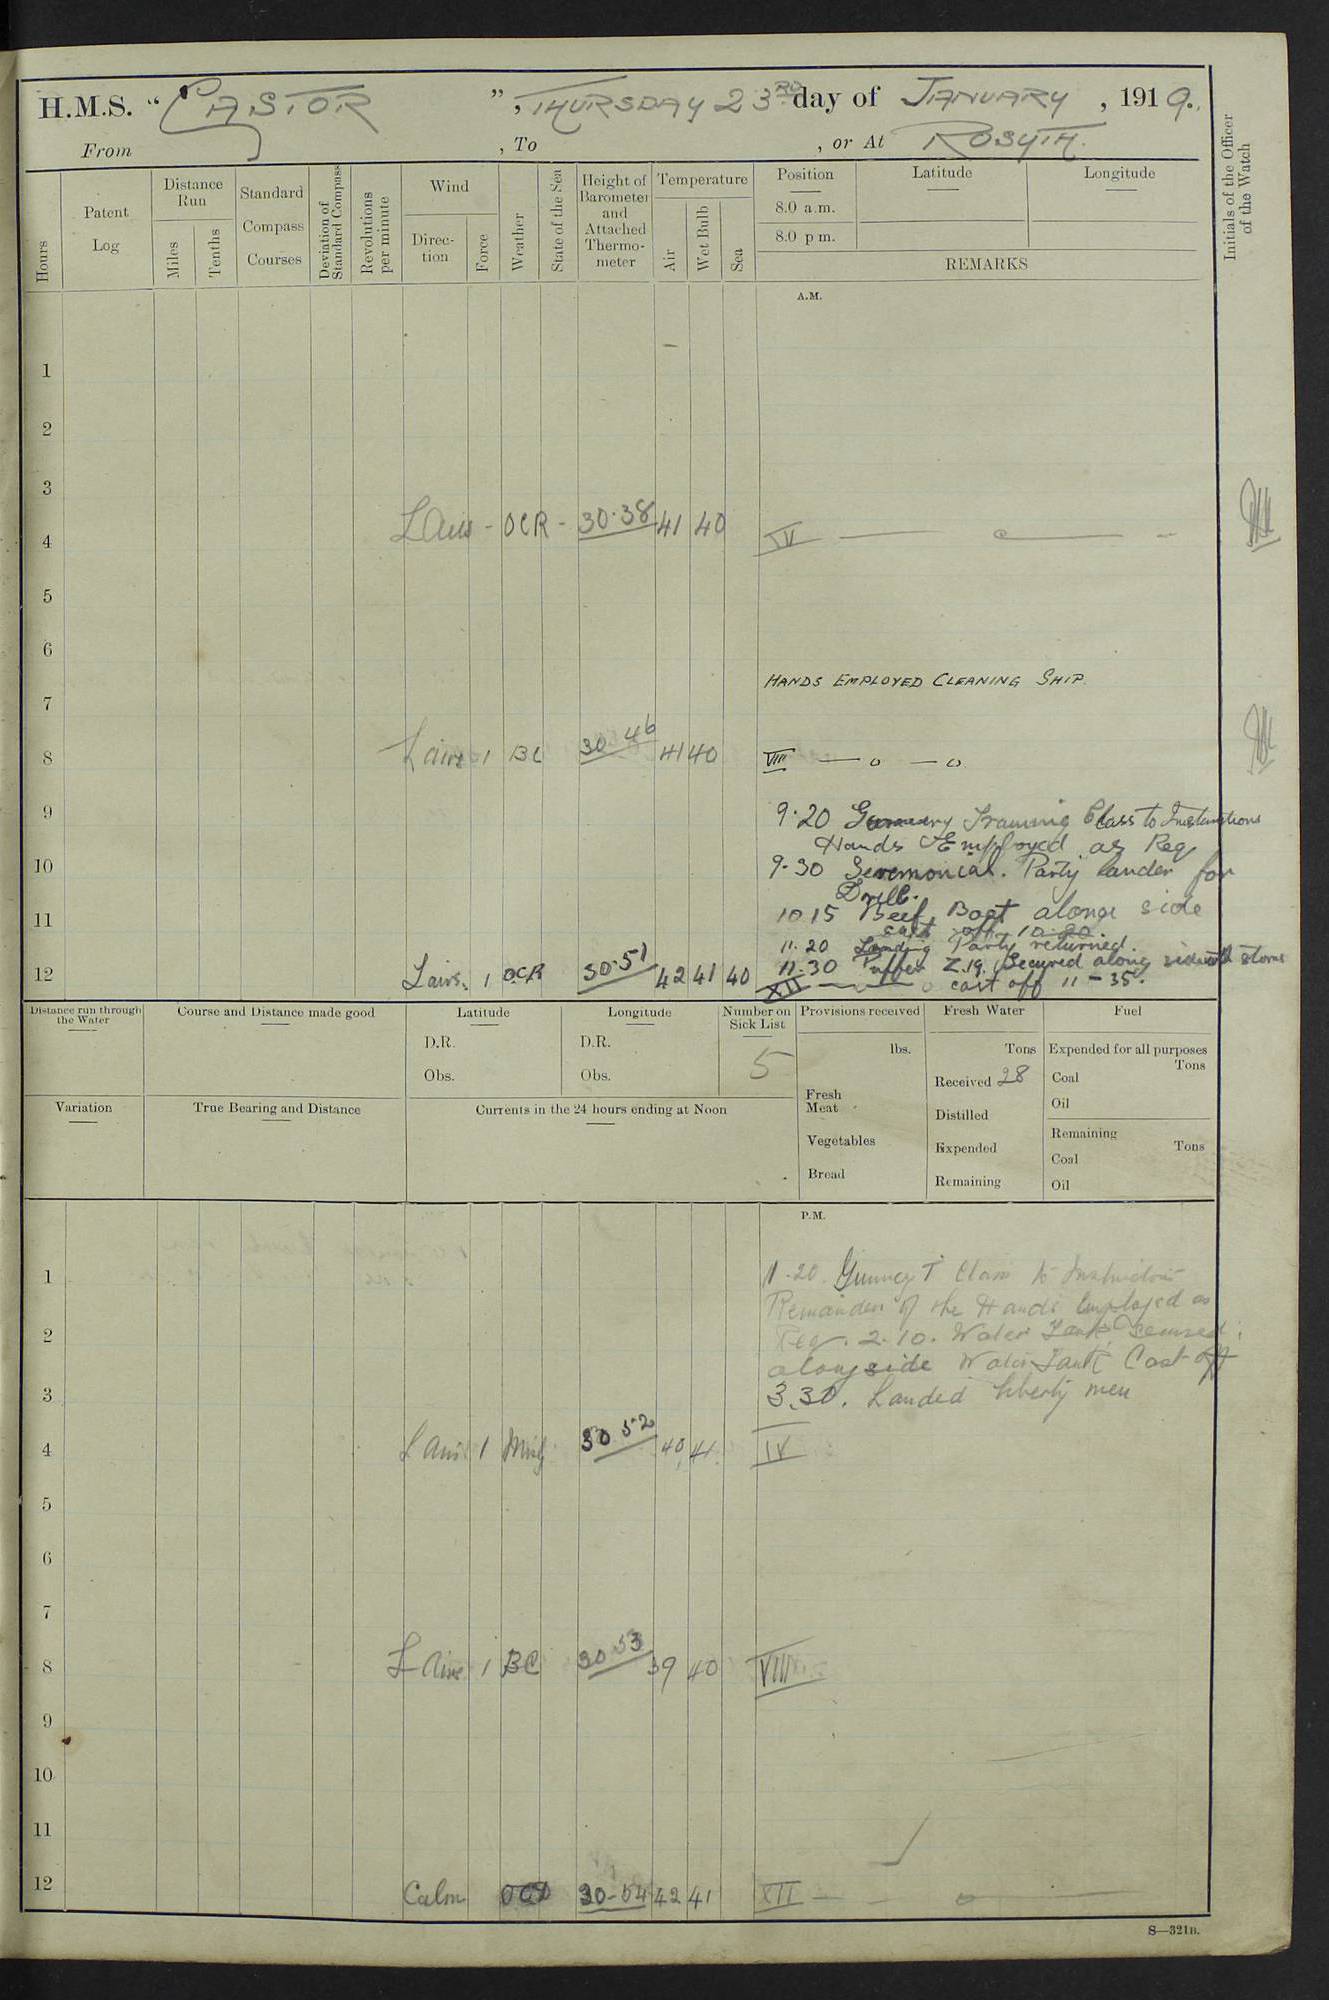 H.M.S. “CASTOR”, THURSDAY 23RD day of JANUARY, 1919.
From , To , or At ROSYTH.
Hours
Patent Log
Distance Run
Miles
Tenths
Standard Compass Courses
Deviation of Standard Compass
Revolutions per minute
Wind
Direc-tion
Force
Weather
State of the Sea
Height of Barometer and Attached Thermo-meter
Temperature
Air
Wet Bulb
Sea
Position
8.0 a.m.
8.0 p m.
Latitude
Longitude
REMARKS
Initials of the Officer of the Watch
A.M.
1
2
3
4 L Airs - OCR - 30.38 41 40 IV
5
6
HANDS EMPLOYED CLEANING SHIP.
7
8 L airs 1 BC 30 46 41 40 VIII
9
9.20 Gunnery Training Class to Instructions
Hands Employed as Req
10
9-30 Seremonial. Party lander for
Drill.
11
10 15 Beef Boat along side
cast off 10-20.
11.20 Landing Party returned.
11.30 Puffer Z.19. Secured along side with stores
12 L airs. 1 OCR 30.51 42 41 40 XII cast off 11-35.
Distance run through the Water
Course and Distance made good
Latitude
D.R.
Obs.
Longitude
D.R.
Obs.
Number on Sick List
5
Provisions received
lbs.
Fresh Meat
Vegetables
Bread
Fresh Water
Tons
Received 28
Distilled
Expended
Remaining
Fuel
Expended for all purposes
Tons
Coal
Oil
Remaining
Tons
Coal
Oil
Variation
True Bearing and Distance
Currents in the 24 hours ending at Noon
P.M.
1
1.20 Gunnery T Class to Instruction
Remainder of the Hands Employed as
2
Req. 2.10. Water Tank Secured
alongside Water Tank Cast off
3
3.30. Landed liberty men
4 L Airs 1 30 52 40 41 IV
5
6
7
8 L Airs 1 BC 30 53 39 40 VIII
9
10
11
12 Calm 30-54 42 41 XII
S—321B.